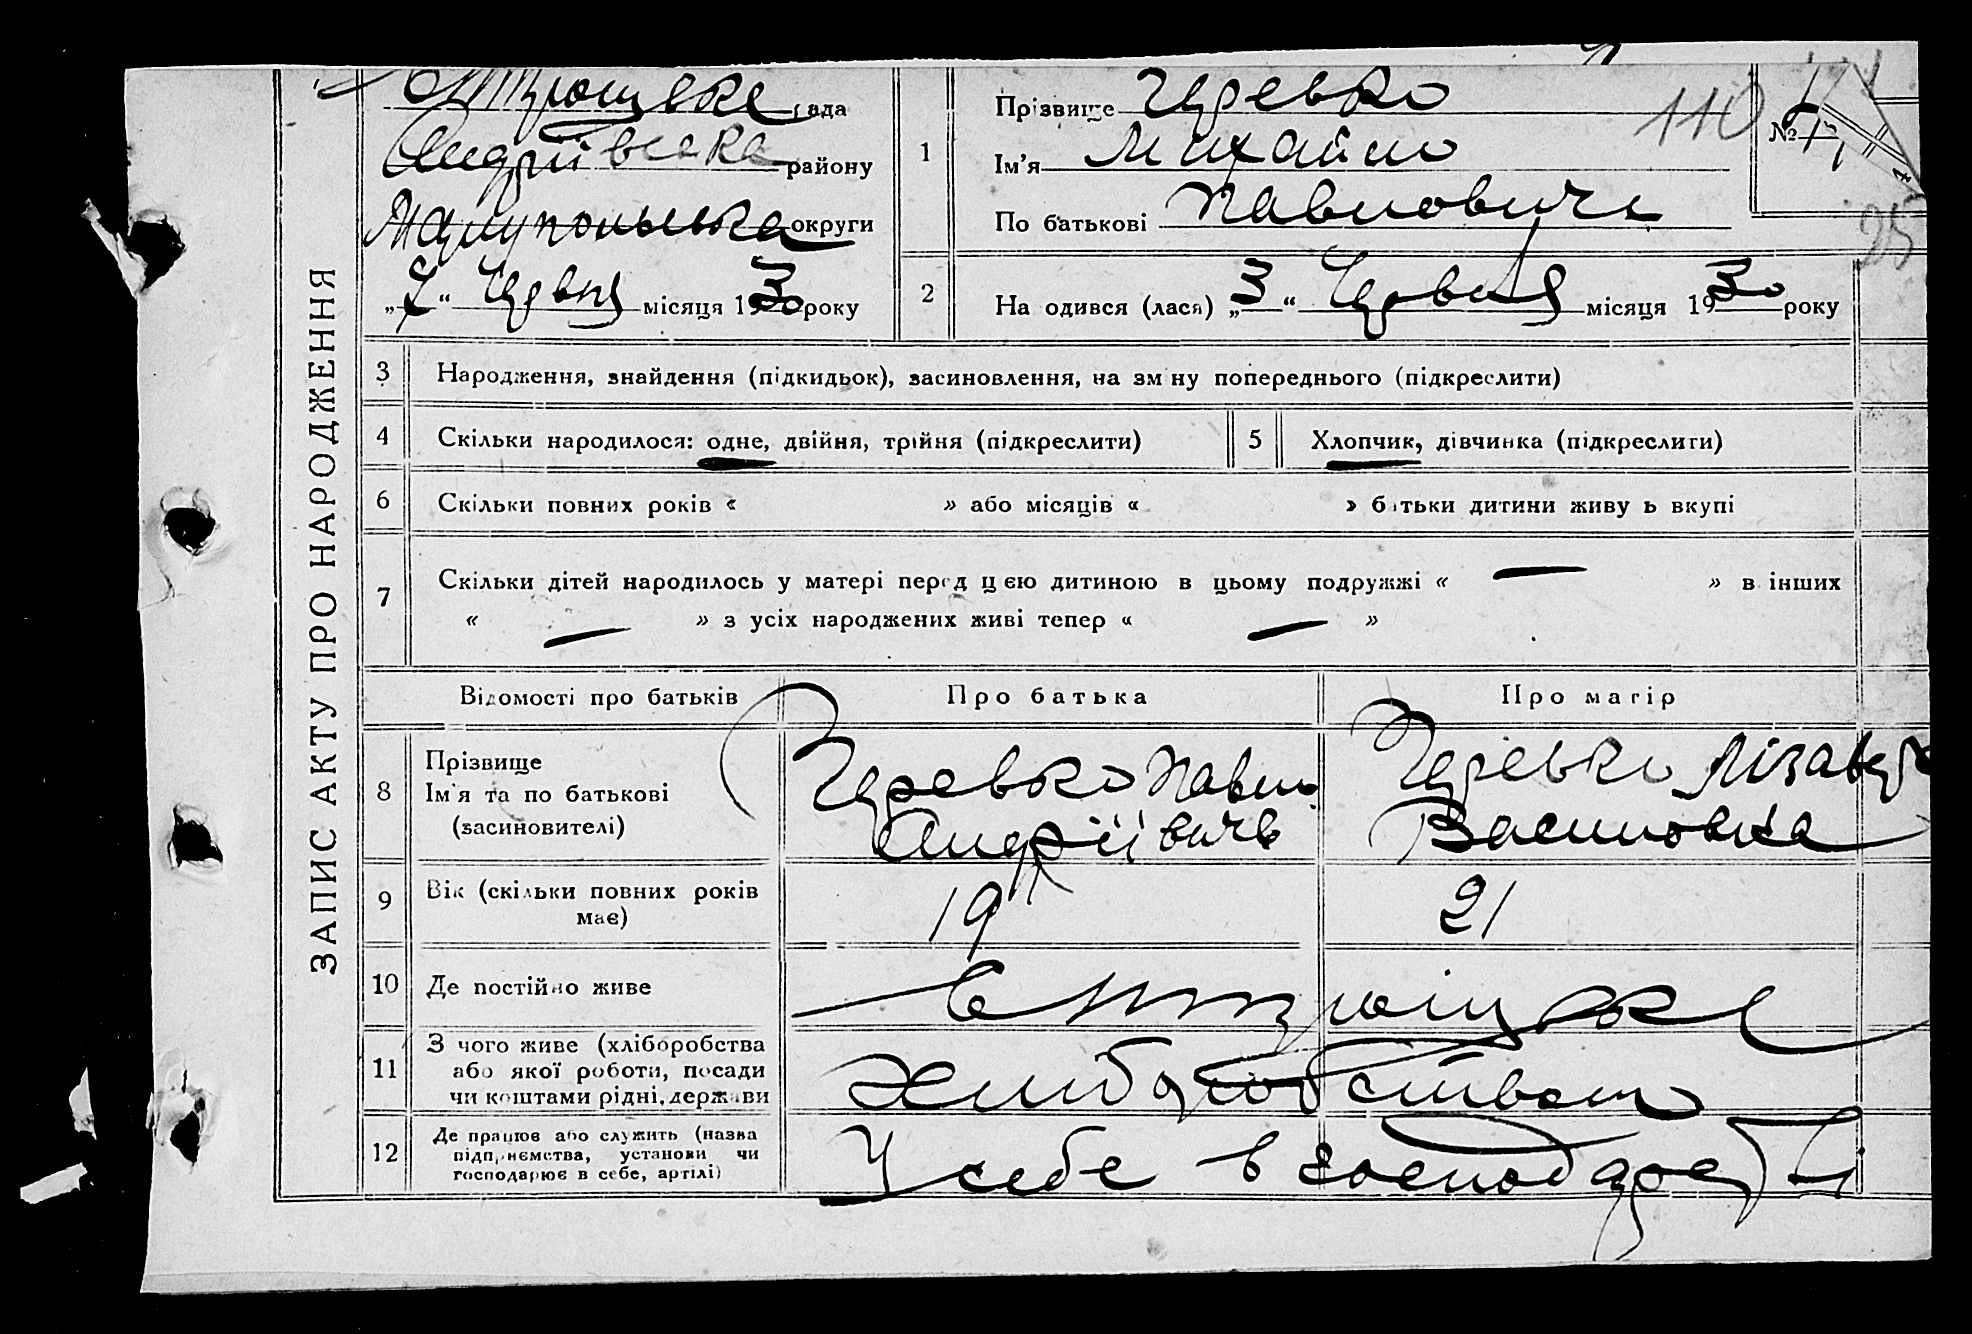 ЗАПИС АКТУ ПРО НАРОДЖЕННЯ
рада
Андріївська району
округи
„7“ Червня місяця 1930 року
1
Прізвище Черевко
Ім'я Михайло
По батькові Павлович
110
№
25
2
На одився (лася) „3“ Червня місяця 1930 року
3 Народження, знайдення (підкидьок), засиновлення, на зм ну попереднього (підкреслити)
4 Скільки народилося: одне, двійня, трійня (підкреслити)
5 Хлопчик, дівчинка (підкреслити)
6 Скільки повних років « » або місяців « » батьки дитини живу ь вкупі
7 Скільки дітей народилось у матері перед цєю дитиною в цьому подружжі « — » в інших
« — » з усіх народжених живі тепер « — »
Відомості про батьків
Про батька
Про матір
8 Прізвище
Ім'я та по батькові
(засиновителі)
Черевко Павло
Андріївичь
Черевко Лізавета
Василовна
9 Вік (скільки повних років
має)
19
21
10 Де постійно живе
11 З чого живе (хліборобства
або якої роботи, посади
чи коштами рідні, держави
хліборобством
12 Де працює або служить (назва
підприємства, установи чи
господарює в себе, артілі)
У себе в господарстві